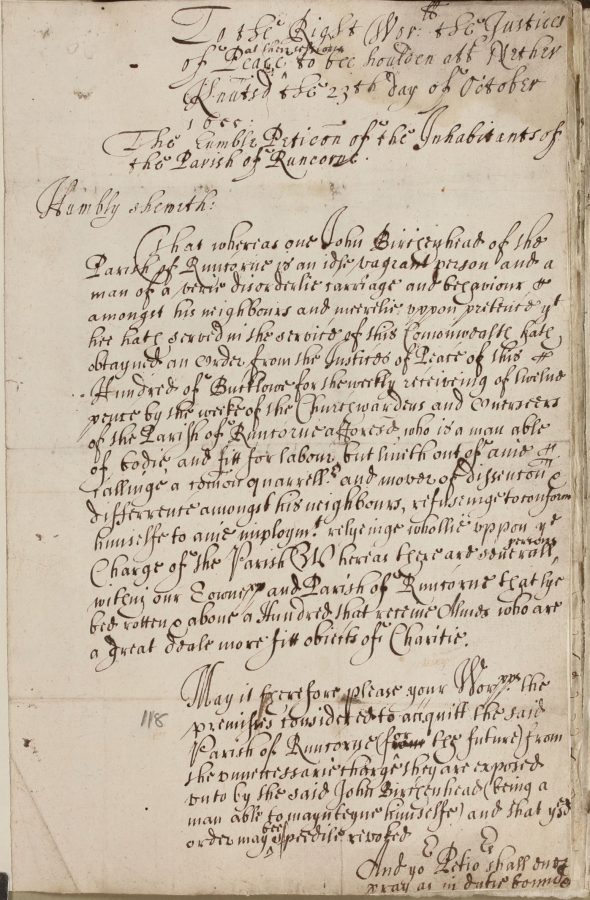 To the Right Wor:tt the Justices
of Peace at their sessions to bee houlden att Nether
Knutsd the 23th day of October
The humble Peticon of the Inhabitants of
the Parish of Runcorne.
Humbly sheweth:
That whereas one John Birchenhead of the
Parish of Runcorne is an idle vagrant person and a
man of a verie disorderlie carriage and behaviour
amongst his neighbours and meerelie uppon pretence yt
hee hath served in the service of this Comonwealth hath
obtayned an Order from the Justices of Peace of this
Hundred of Bucklowe for the weekly receiveing of twelve
pence by the weeke of the Churchwardens and Overseers
of the Parish of Runcorne afforesd, who is a man able
of bodie and fitt for labour, but liveth out of anie
callinge a comon quarreller and mover of dissention &
difference amongst his neighbours, refuseinge to conform
himselfe to anie imploymt. relyeinge whollie uppon ye
Charge of the Parish Whereas there are severall persons
within our Towne and Parish of Runcorne that lye
bed rotten & above a Hundred that receive Almes who are
a great deale more fitt objects of Charitie.
May it therefore please your Worpps. the
premisses considered to acquitt the said
Parish of Runcorne (for the future) from
the unnecessarie charge they are exposed
unto by the said John Birchenhead (being a
man able to maynteyne himselfe) and that ye sd
order may bee speedilie revoked
And yor Petrs shall ever
pray as in dutie bound
118